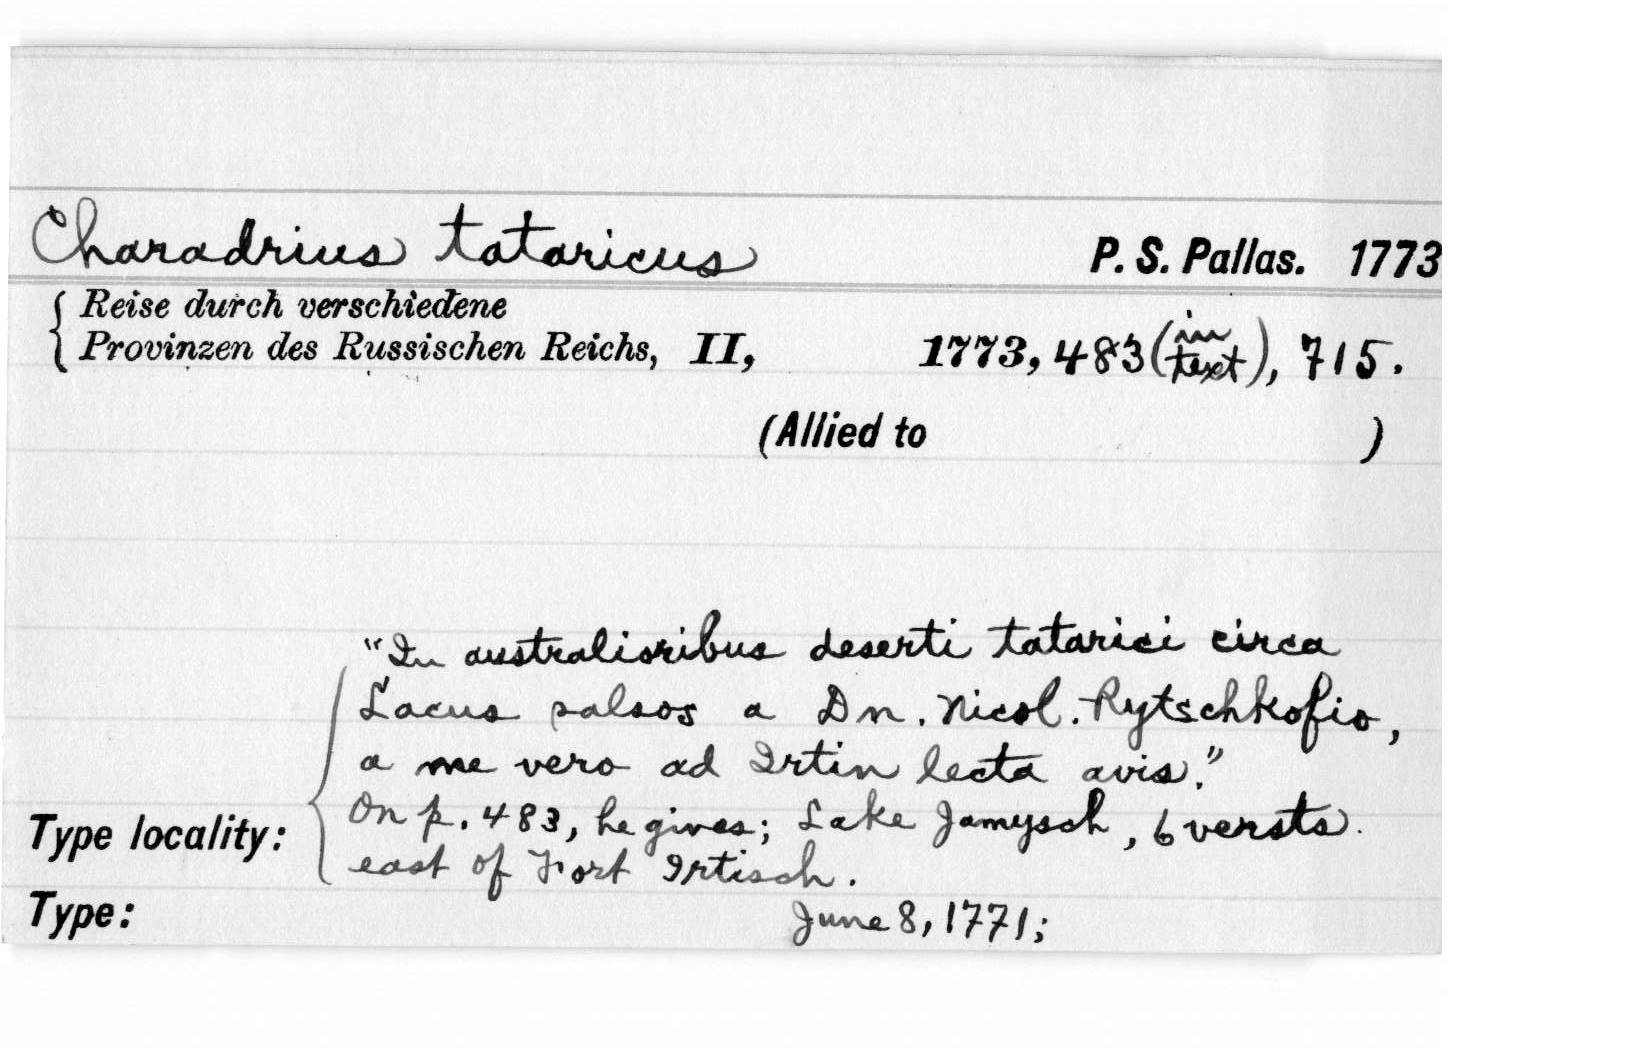 Charadrius tataricus P. S. Pallas. 1773
Reise durch verschiedene
Provinzen des Russischen Reichs, II, 1773, 483 (in text), 715.
(Allied to )
"In australioribus deserti tatarici circa
Lacus salsos a Dn. Nicol. Rytschkofio,
a me vero ad Irtin lecta avis."
On p. 483, he gives; Lake Jamysch, 6 versts.
east of Fort Irtisch.
Type locality:
Type: June 8, 1771;